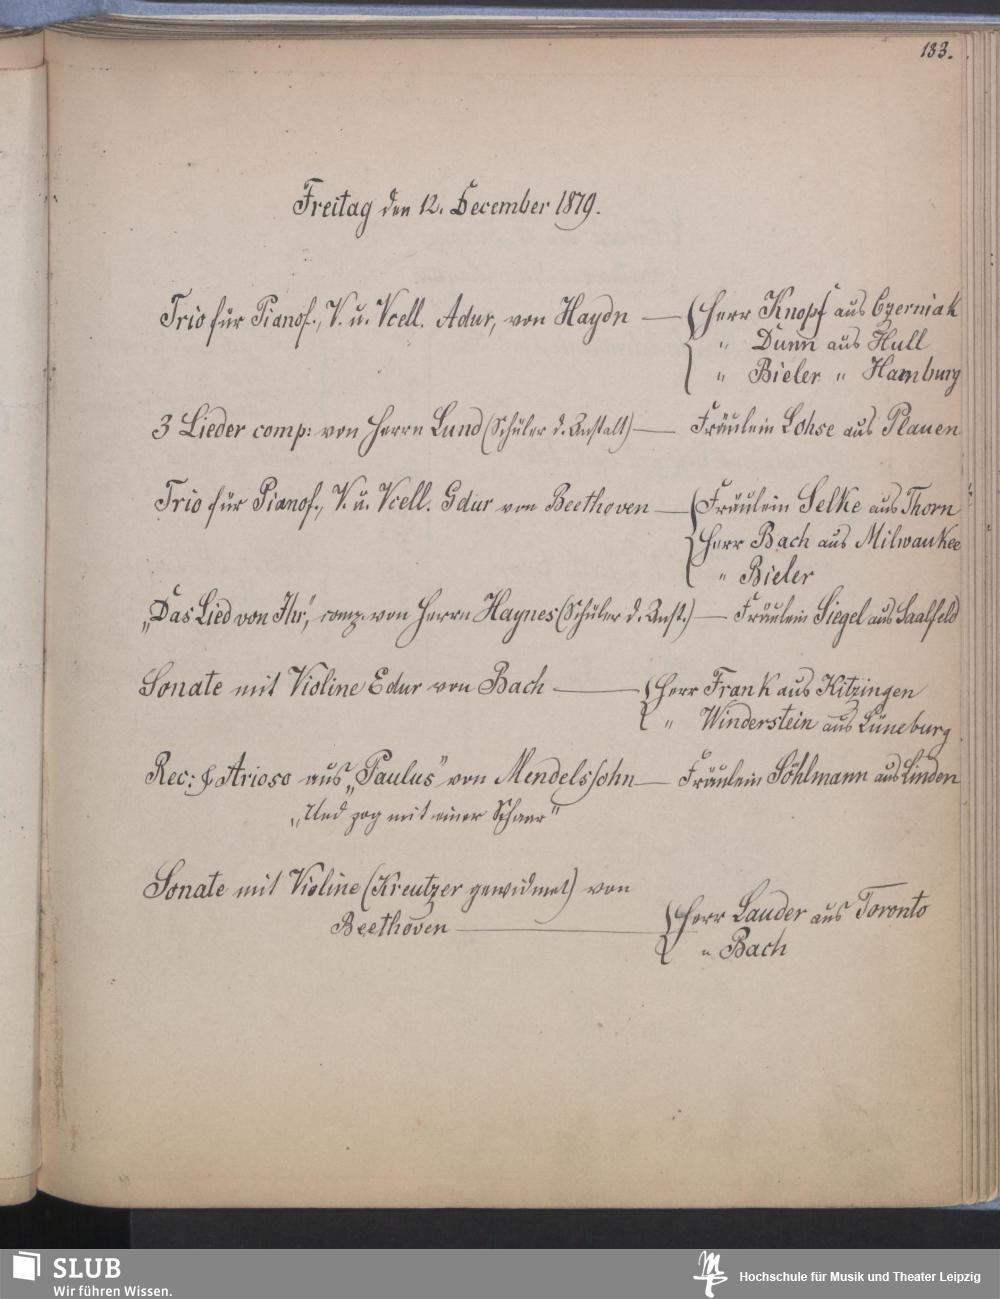 133.
Freitag den 12. December 1879.
Trio für Pianof., V. u. Vcell. Adur, von Haydn — Herr Knopf aus Czerniak
" Dunn aus Hull
" Bieler " Hamburg
3 Lieder comp: von Herrn Lund (Schüler d. Anstalt) — Fräulein Lohse aus Plauen
Trio für Pianof., V. u. Vcell. Gdur von Beethoven — Fräulein Selke aus Thorn
Herr Bach aus Milwaukee
" Bieler
„Das Lied von Ihr", comp. von Herrn Haynes (Schüler d. Anst.) — Fräulein Siegel aus Saalfeld
Sonate mit Violine Edur von Bach — Herr Frank aus Kitzingen
" Winderstein aus Lüneburg
Rec: & Arioso aus „Paulus" von Mendelssohn — Fräulein Söhlmann aus Linden
„Und zog mit einer Schaar"
Sonate mit Violine (Kreutzer gewidmet) von
Beethoven — Herr Lauder aus Toronto
" Bach
SLUB
Wir führen Wissen.
Hochschule für Musik und Theater Leipzig